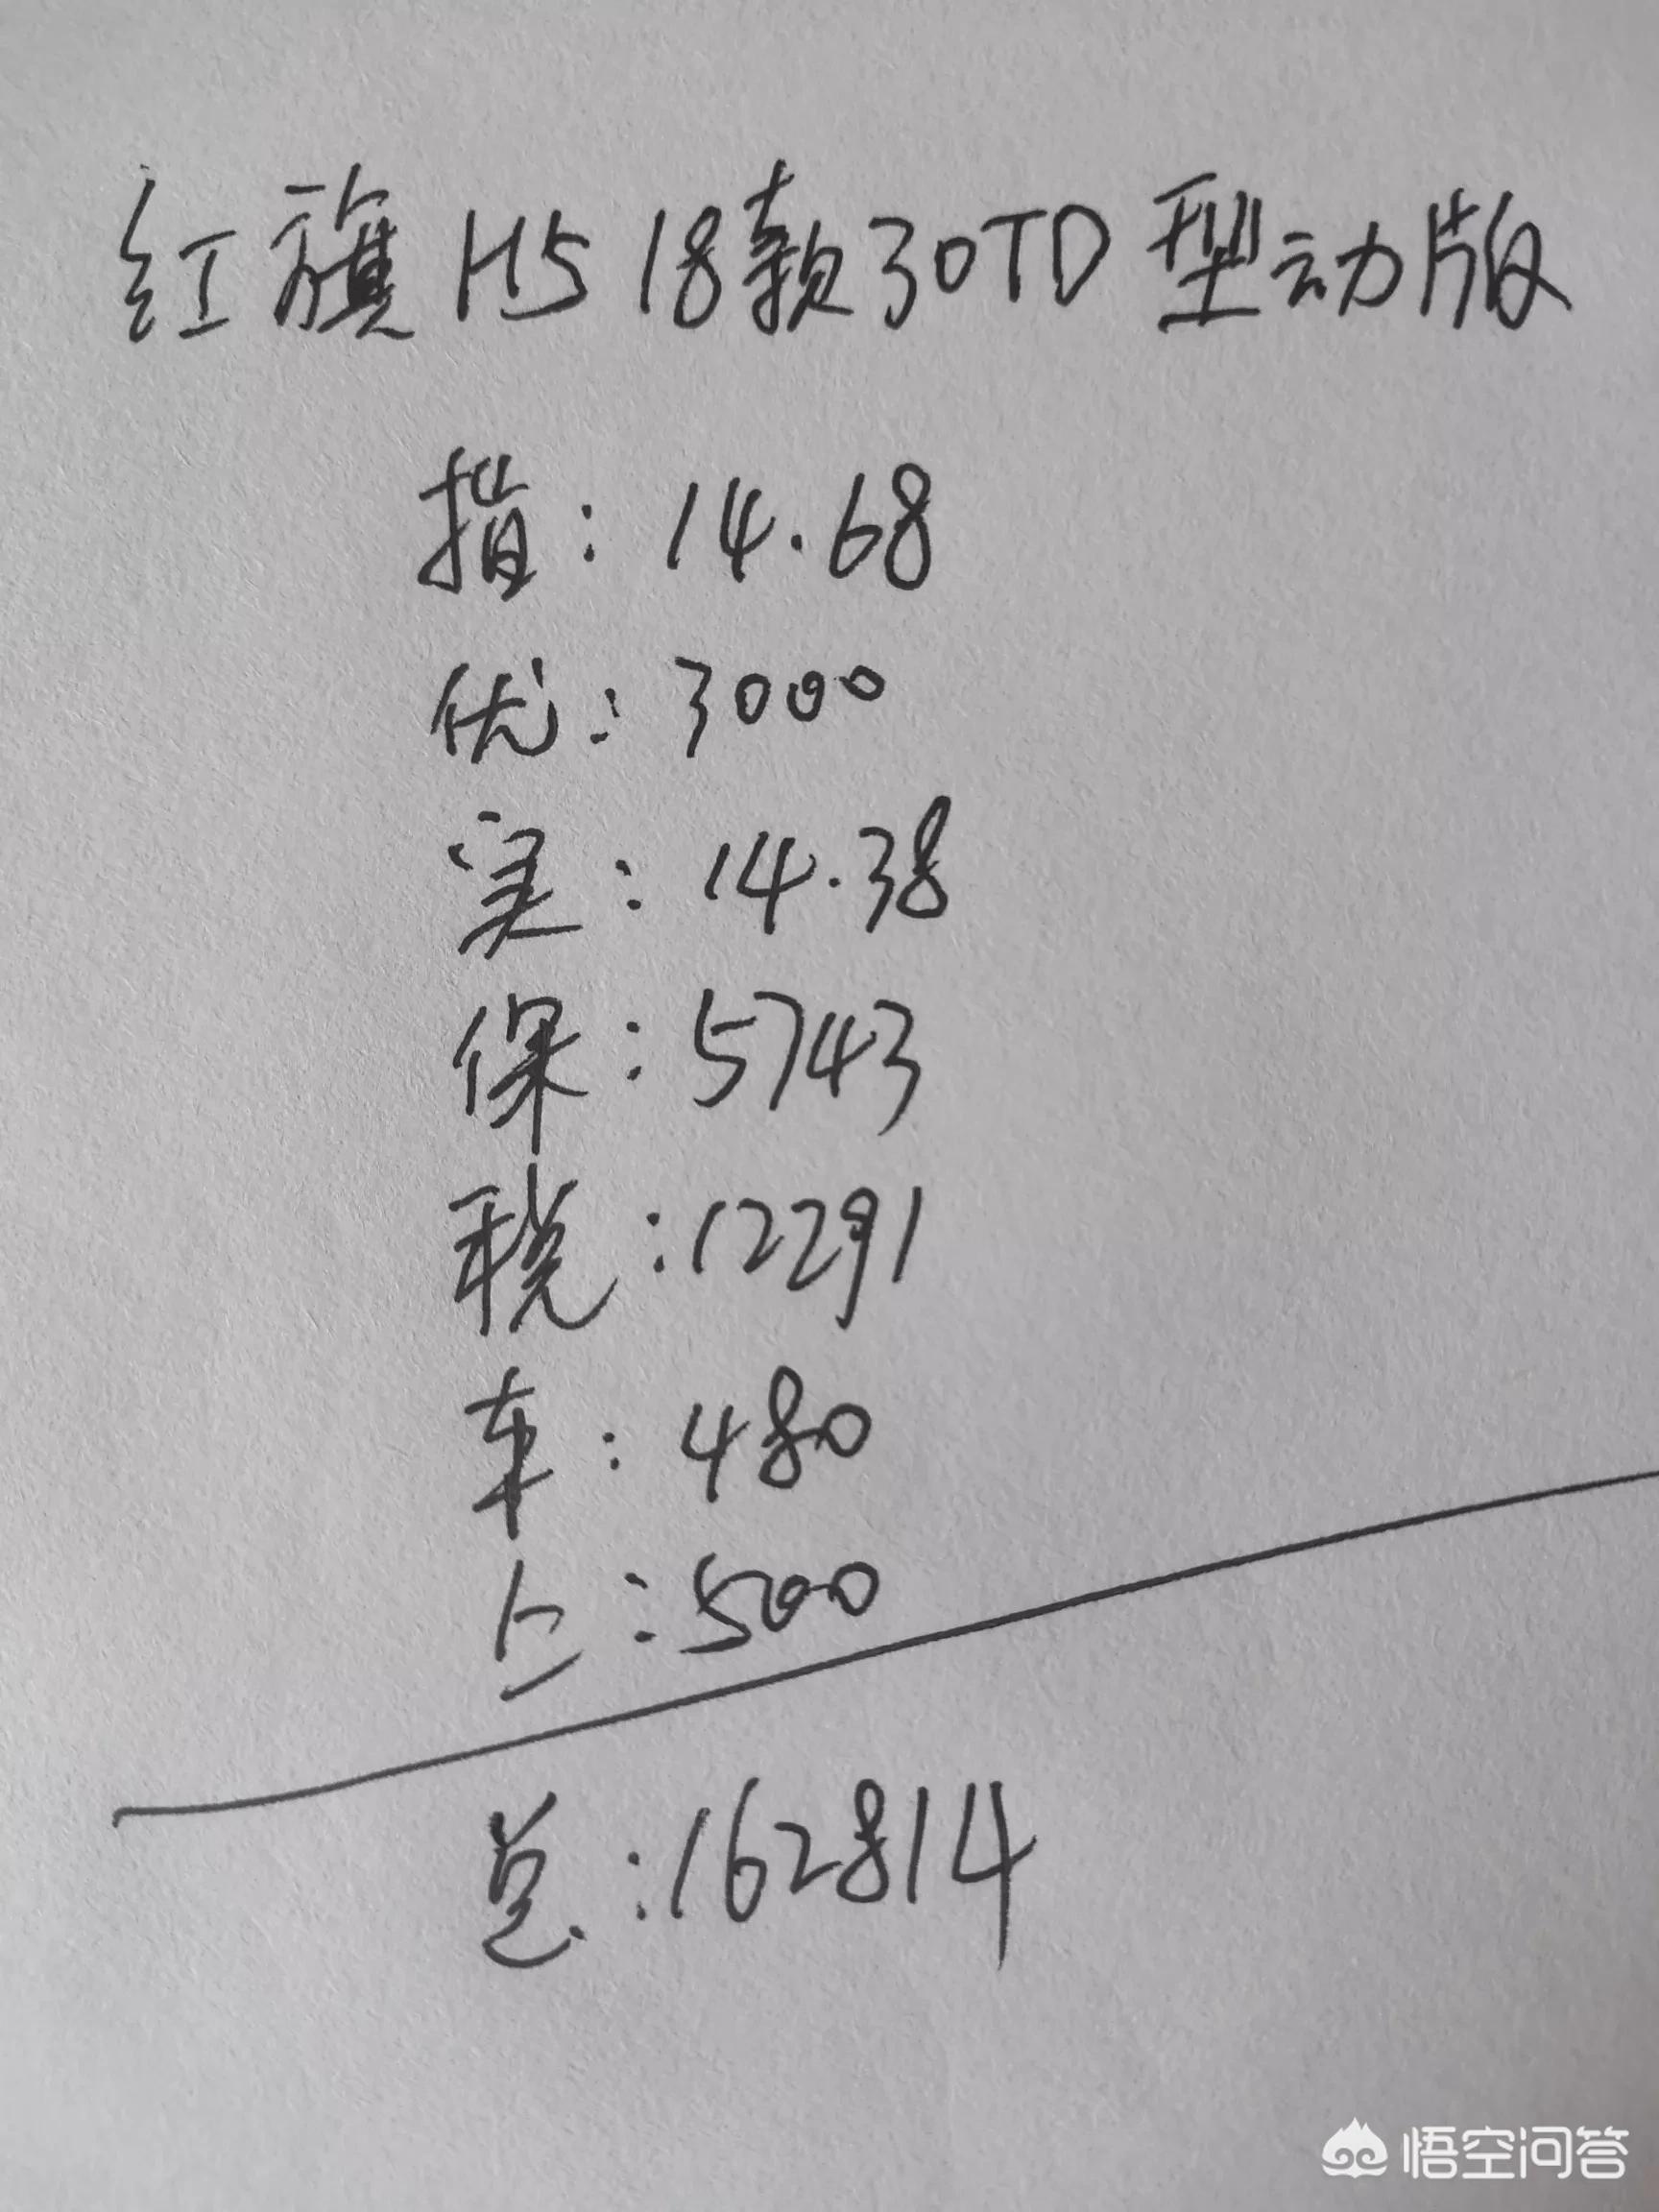 红旗H5 18款30TD型动版
指:14.68
优:3000
实:14.38
保:5743
税:12291
车:480
上:500
总:162814
悟空问答